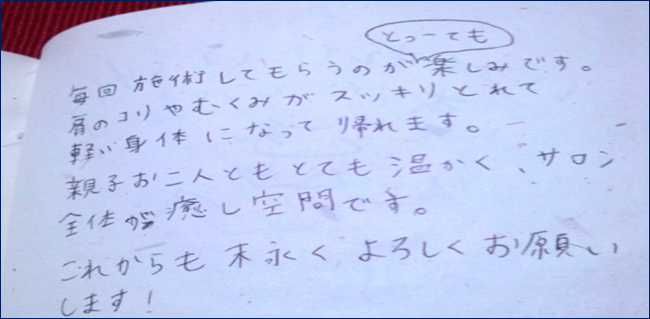 とっーても
毎回施術してもらうのが楽しみです。
肩のコリやむくみがスッキリとれて
軽い身体になって帰れます。
親子お二人ともとても温かく、サロン
全体が癒し空間です。
これからも末永くよろしくお願い
します!